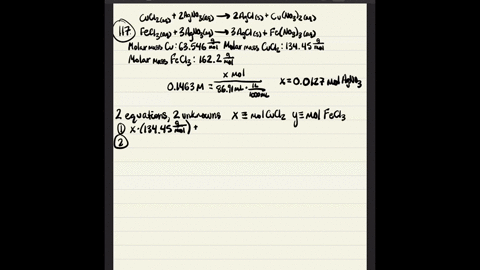 117
CuCl₂(aq) + 2AgNO₃(aq) → 2AgCl(s) + Cu(NO₃)₂(aq)
FeCl₃(aq) + 3AgNO₃(aq) → 3AgCl(s) + Fe(NO₃)₃(aq)
Molar mass Cu: 63.546 g/mol Molar mass CuCl₂: 134.45 g/mol
Molar mass FeCl₃: 162.2 g/mol
0.1463 M = x mol / (86.91 mL · 1L/1000mL) x = 0.0127 mol AgNO₃
2 equations, 2 unknowns x ≡ mol CuCl₂ y ≡ mol FeCl₃
① x·(134.45 g/mol) +
②